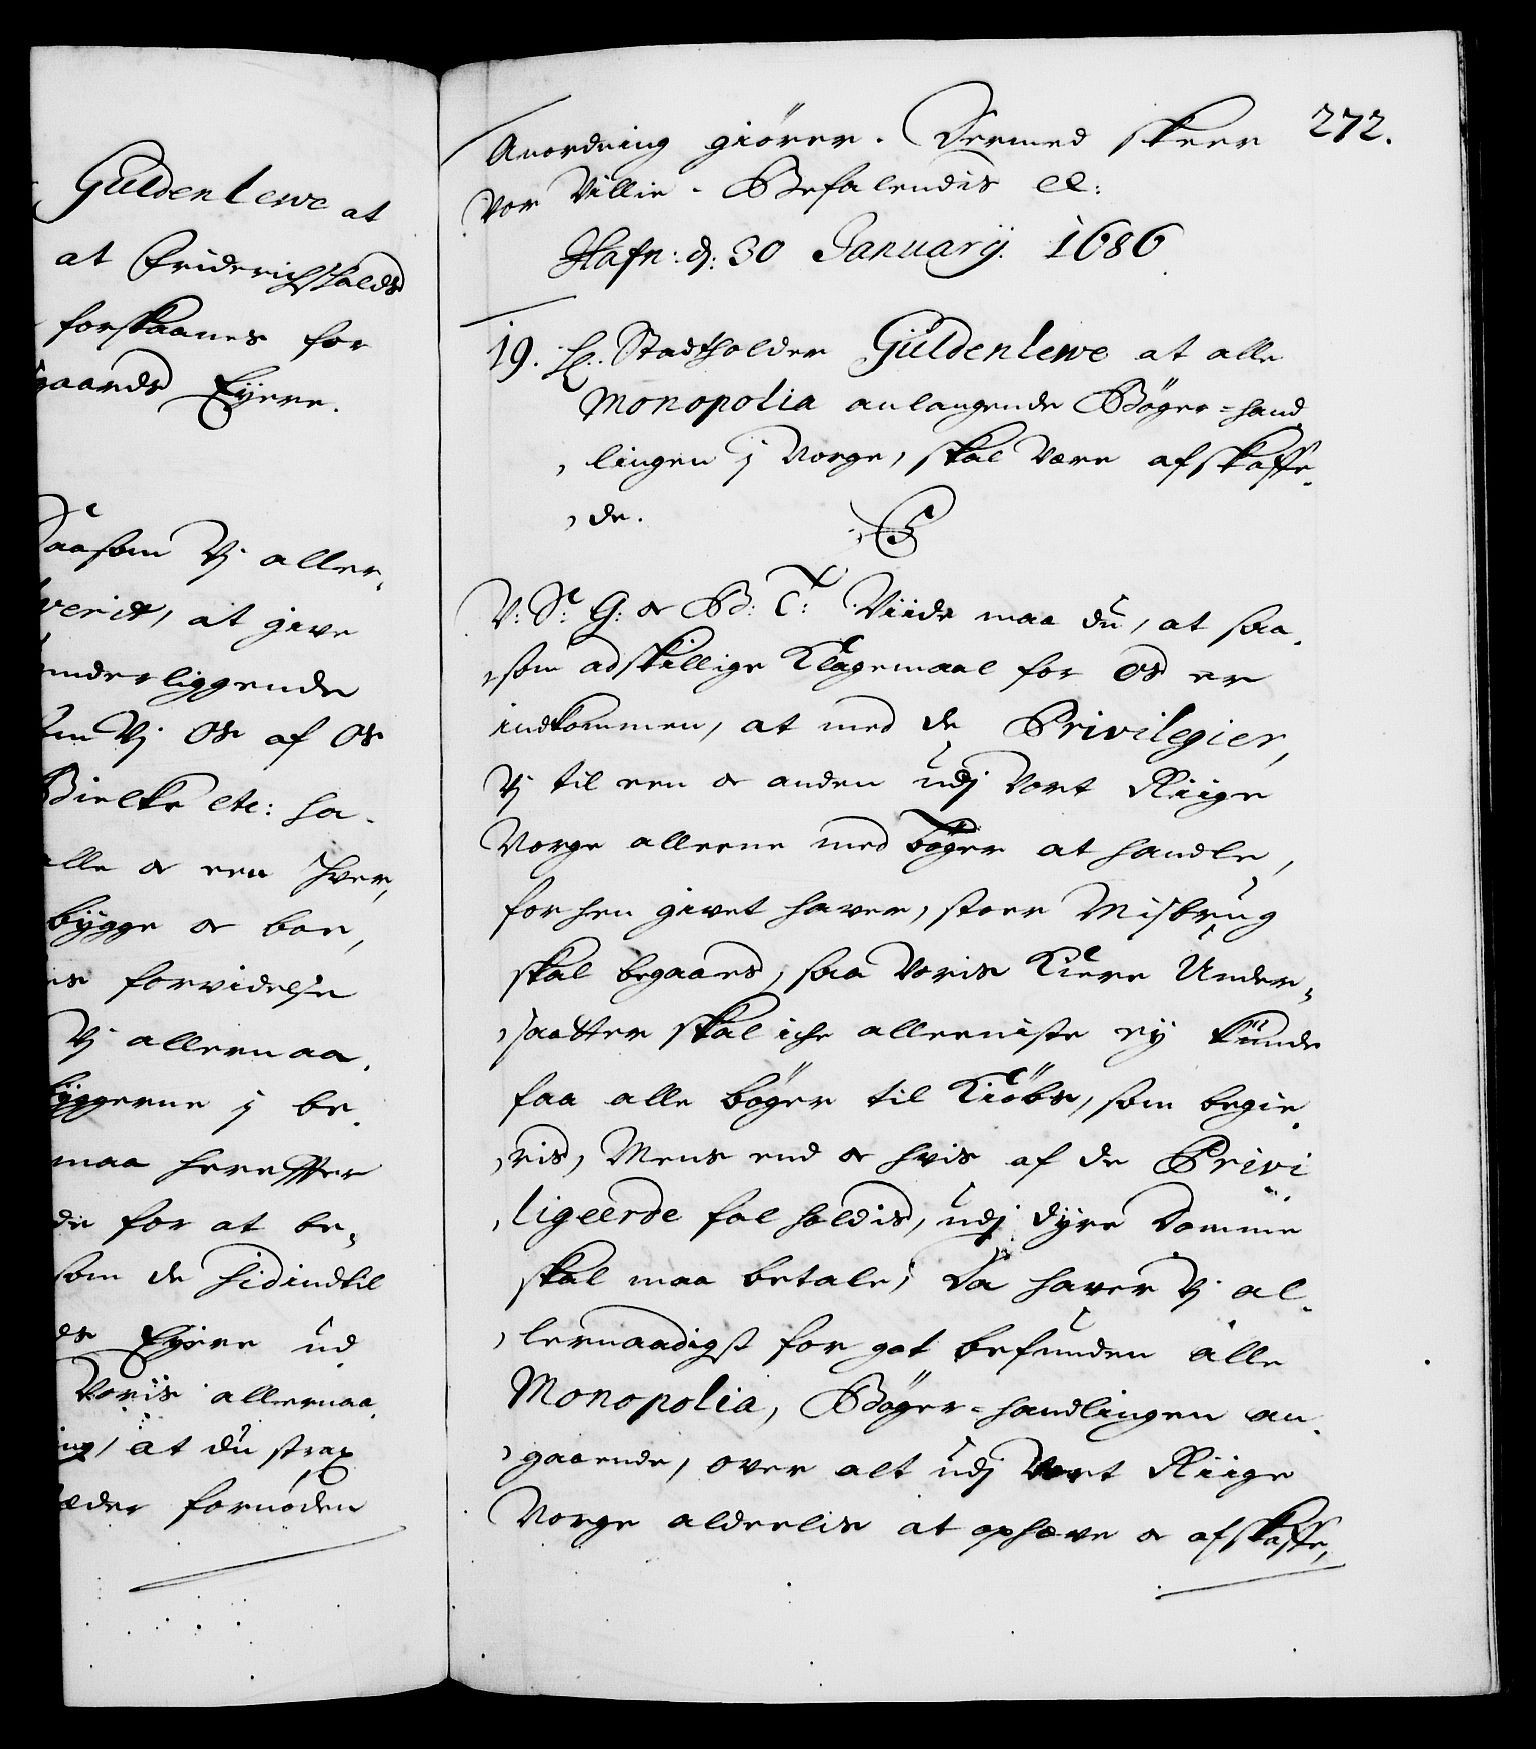 Güldenlewe at
at Friderichshalds
forskaanes for
gaards Eyere.
Saasom Vj aller-
at give
underliggende
Vj Os af Os
Bielke etc: ha-
alle og een hver,
bygge og boe,
forvidelse
Vj allernaa-
byggerne j be-
maa hereffter
de for at be-
som de hidindtil
Eyere ud
Voris allernaa
at du strax
steder fornøden
272.
Anordning giører. Dermed skeer
vor Villie. Befalendis etc:
Hafn: d: 30 Januarij. 1686
19. H: Stadtholder Güldenlewe at alle
Monopolia anlangende Bøger-hand
lingen j Norge, skal være afskaffe-
de.
V: S: G: og B: T: Viide maa du, at saa-
som adskillige Klagemaal for Os er
indkommen, at med de Privilegier,
Vj til een og anden udj Vort Riige
Norge alleene med bøger at handle,
forhen givet haver, stoer Misbrug
skal begaaes, saa Voris Kiere Under-
saatter skal iche alleeniste ey kunde
faa alle bøger til Kiøbs, som begie-
ris, Mens end og hvis af de Privi
ligeerde fal holdis, udj dyre Domme
skal maa betale; Da haver Vj al-
lernaadigst for got befunden alle
Monopolia, Bøger-handlingen an-
gaaende, over alt udj Vort Riige
Norge aldeelis at ophæve og afskaffe,